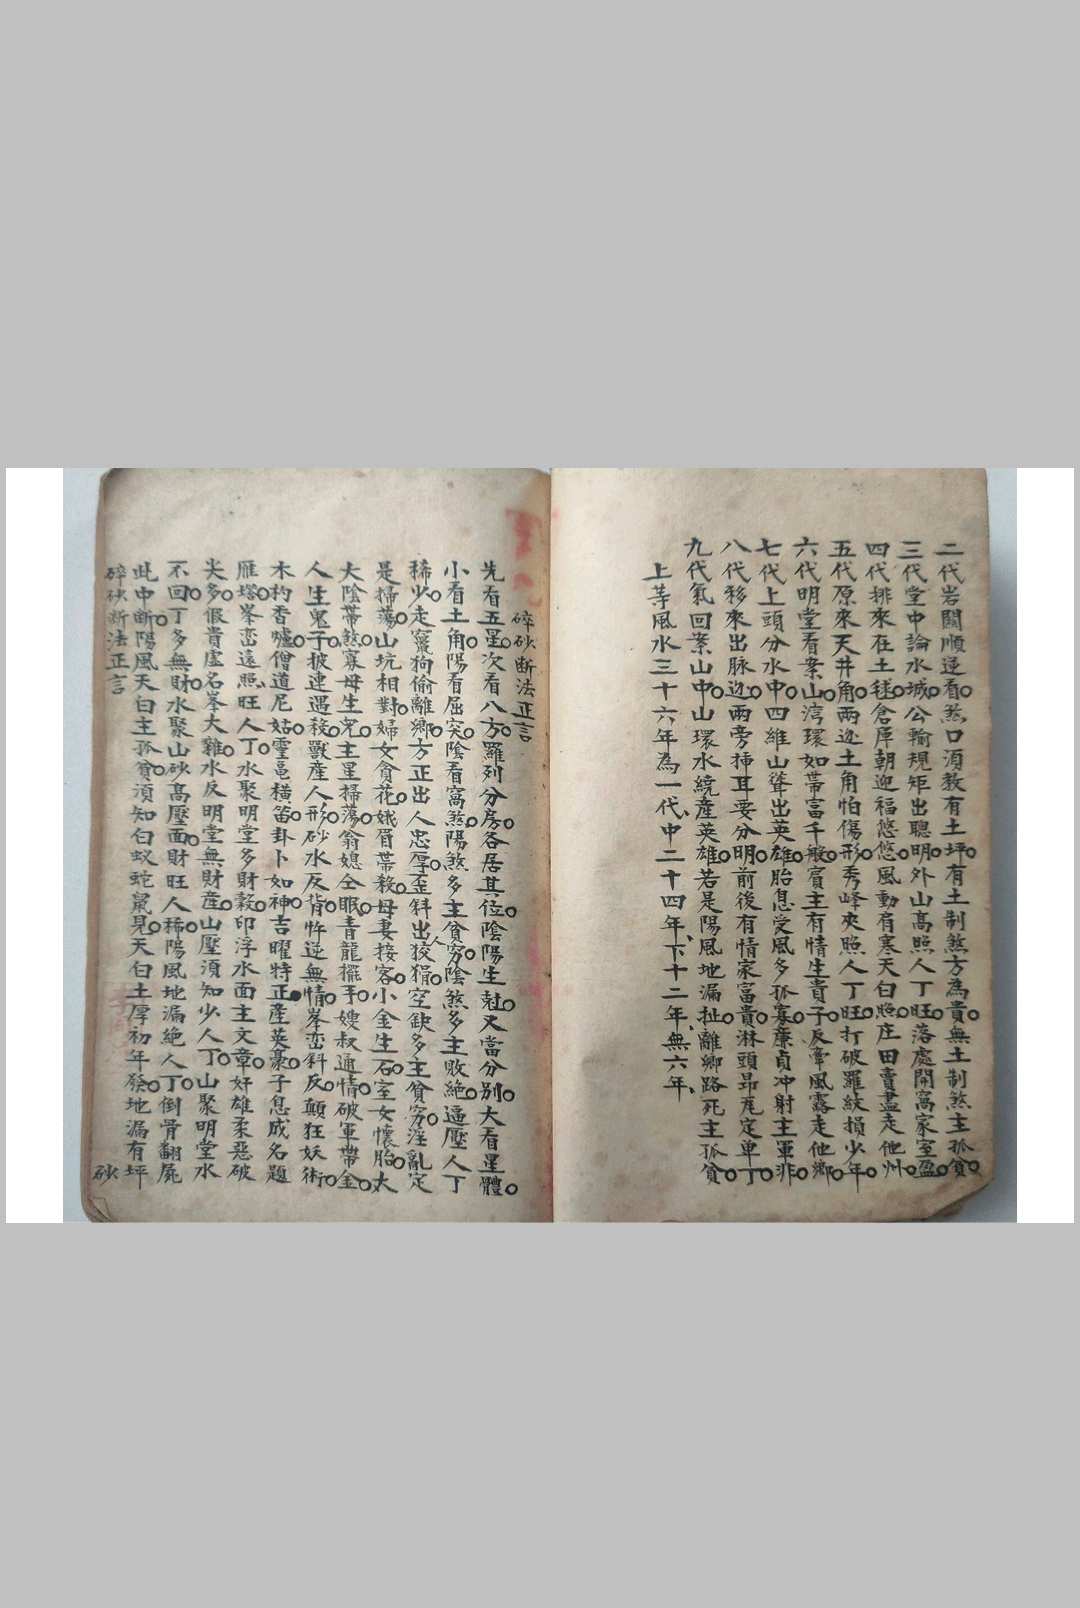 二代岩關順逆看煞口須教有土坪有土制煞方為貴無土制煞主孤貧
三代堂中論水城公輸規矩出聰明外山高照人丁旺落處開窩家室盈
四代排來在土毬倉庫朝迎福悠悠風動肩寒天白照庄田賣盡走他州
五代原來天井角兩边土角怕傷形秀峰夾照人丁旺打破羅紋損少年
六代明堂看案山湾環如帶富千般賓主有情生貴子反牽風露走他鄉
七代上頭分水中四維山聳出英雄胎息受風多孤寡廉貞冲射主軍非
八代移來出脉边兩旁揷耳要分明前後有情家富貴淋頭昂瓦定单丁
九代氣回業山中山環水繞產英雄若是陽風地漏扯離鄉路死主孤貧
上等風水三十六年為一代中二十四年下十二年無六年
碎砂断法正言
先看五星次看八方羅列分房各居其位陰陽生尅又當分別大看星體
小看土角陽看屈突陰看窩煞陽煞多主貧穷陰煞多主敗絕逼壓人丁
稀少走竄狗偷離鄉方正出人忠厚歪斜出狡猾空缺多主貧穷淫亂定
是掃蕩山坑相對婦女貪花娥眉帶殺母妻接客小金生石室女懷胎太
大陰帶煞寡母生兒主星掃蕩翁媳仝眠青龍擺手嫂叔通情破軍帶金
人生鬼子披連遇殺獸產人形砂水反背忤逆無情峯峦斜反顛狂妖術
木杓香爐僧道尼姑靈龟橫笛卦卜如神吉曜特正產英豪子息成名題
雁塔峯峦遠照旺人丁水聚明堂多財穀印浮水面主文章奸雄柔惡破
尖多假貴虛名峯大雜水反明堂無財產山壓須知少人丁山聚明堂水
不回丁多無財水聚山砂高壓面財旺人稀陽風地漏絕人丁倒骨翻屍
此中断陽風天白主孤貧須知白蚁蛇鼠見天白土厚初年發地漏有坪
碎砂断法正言
砂